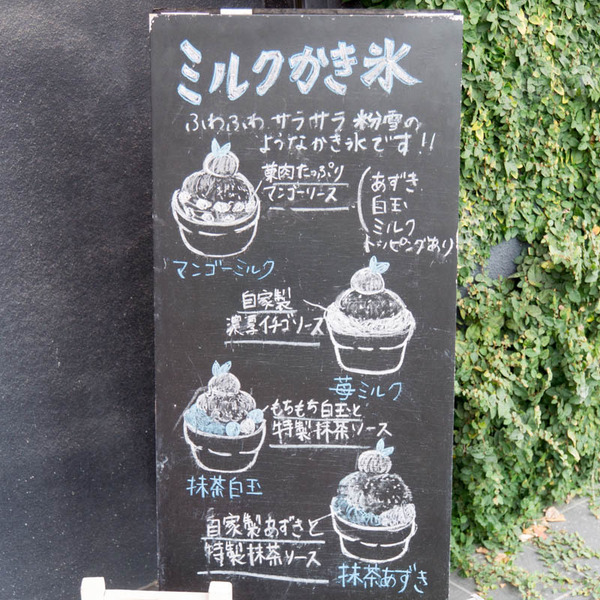 ミルクかき氷
ふわふわ サラサラ 粉雪の
ようなかき氷です!!
果肉たっぷり
マンゴーソース
あずき
白玉
ミルク
トッピングあり
マンゴーミルク
自家製
濃厚イチゴソース
苺ミルク
もちもち白玉と
特製抹茶ソース
抹茶白玉
自家製あずきと
特製抹茶ソース
抹茶あずき